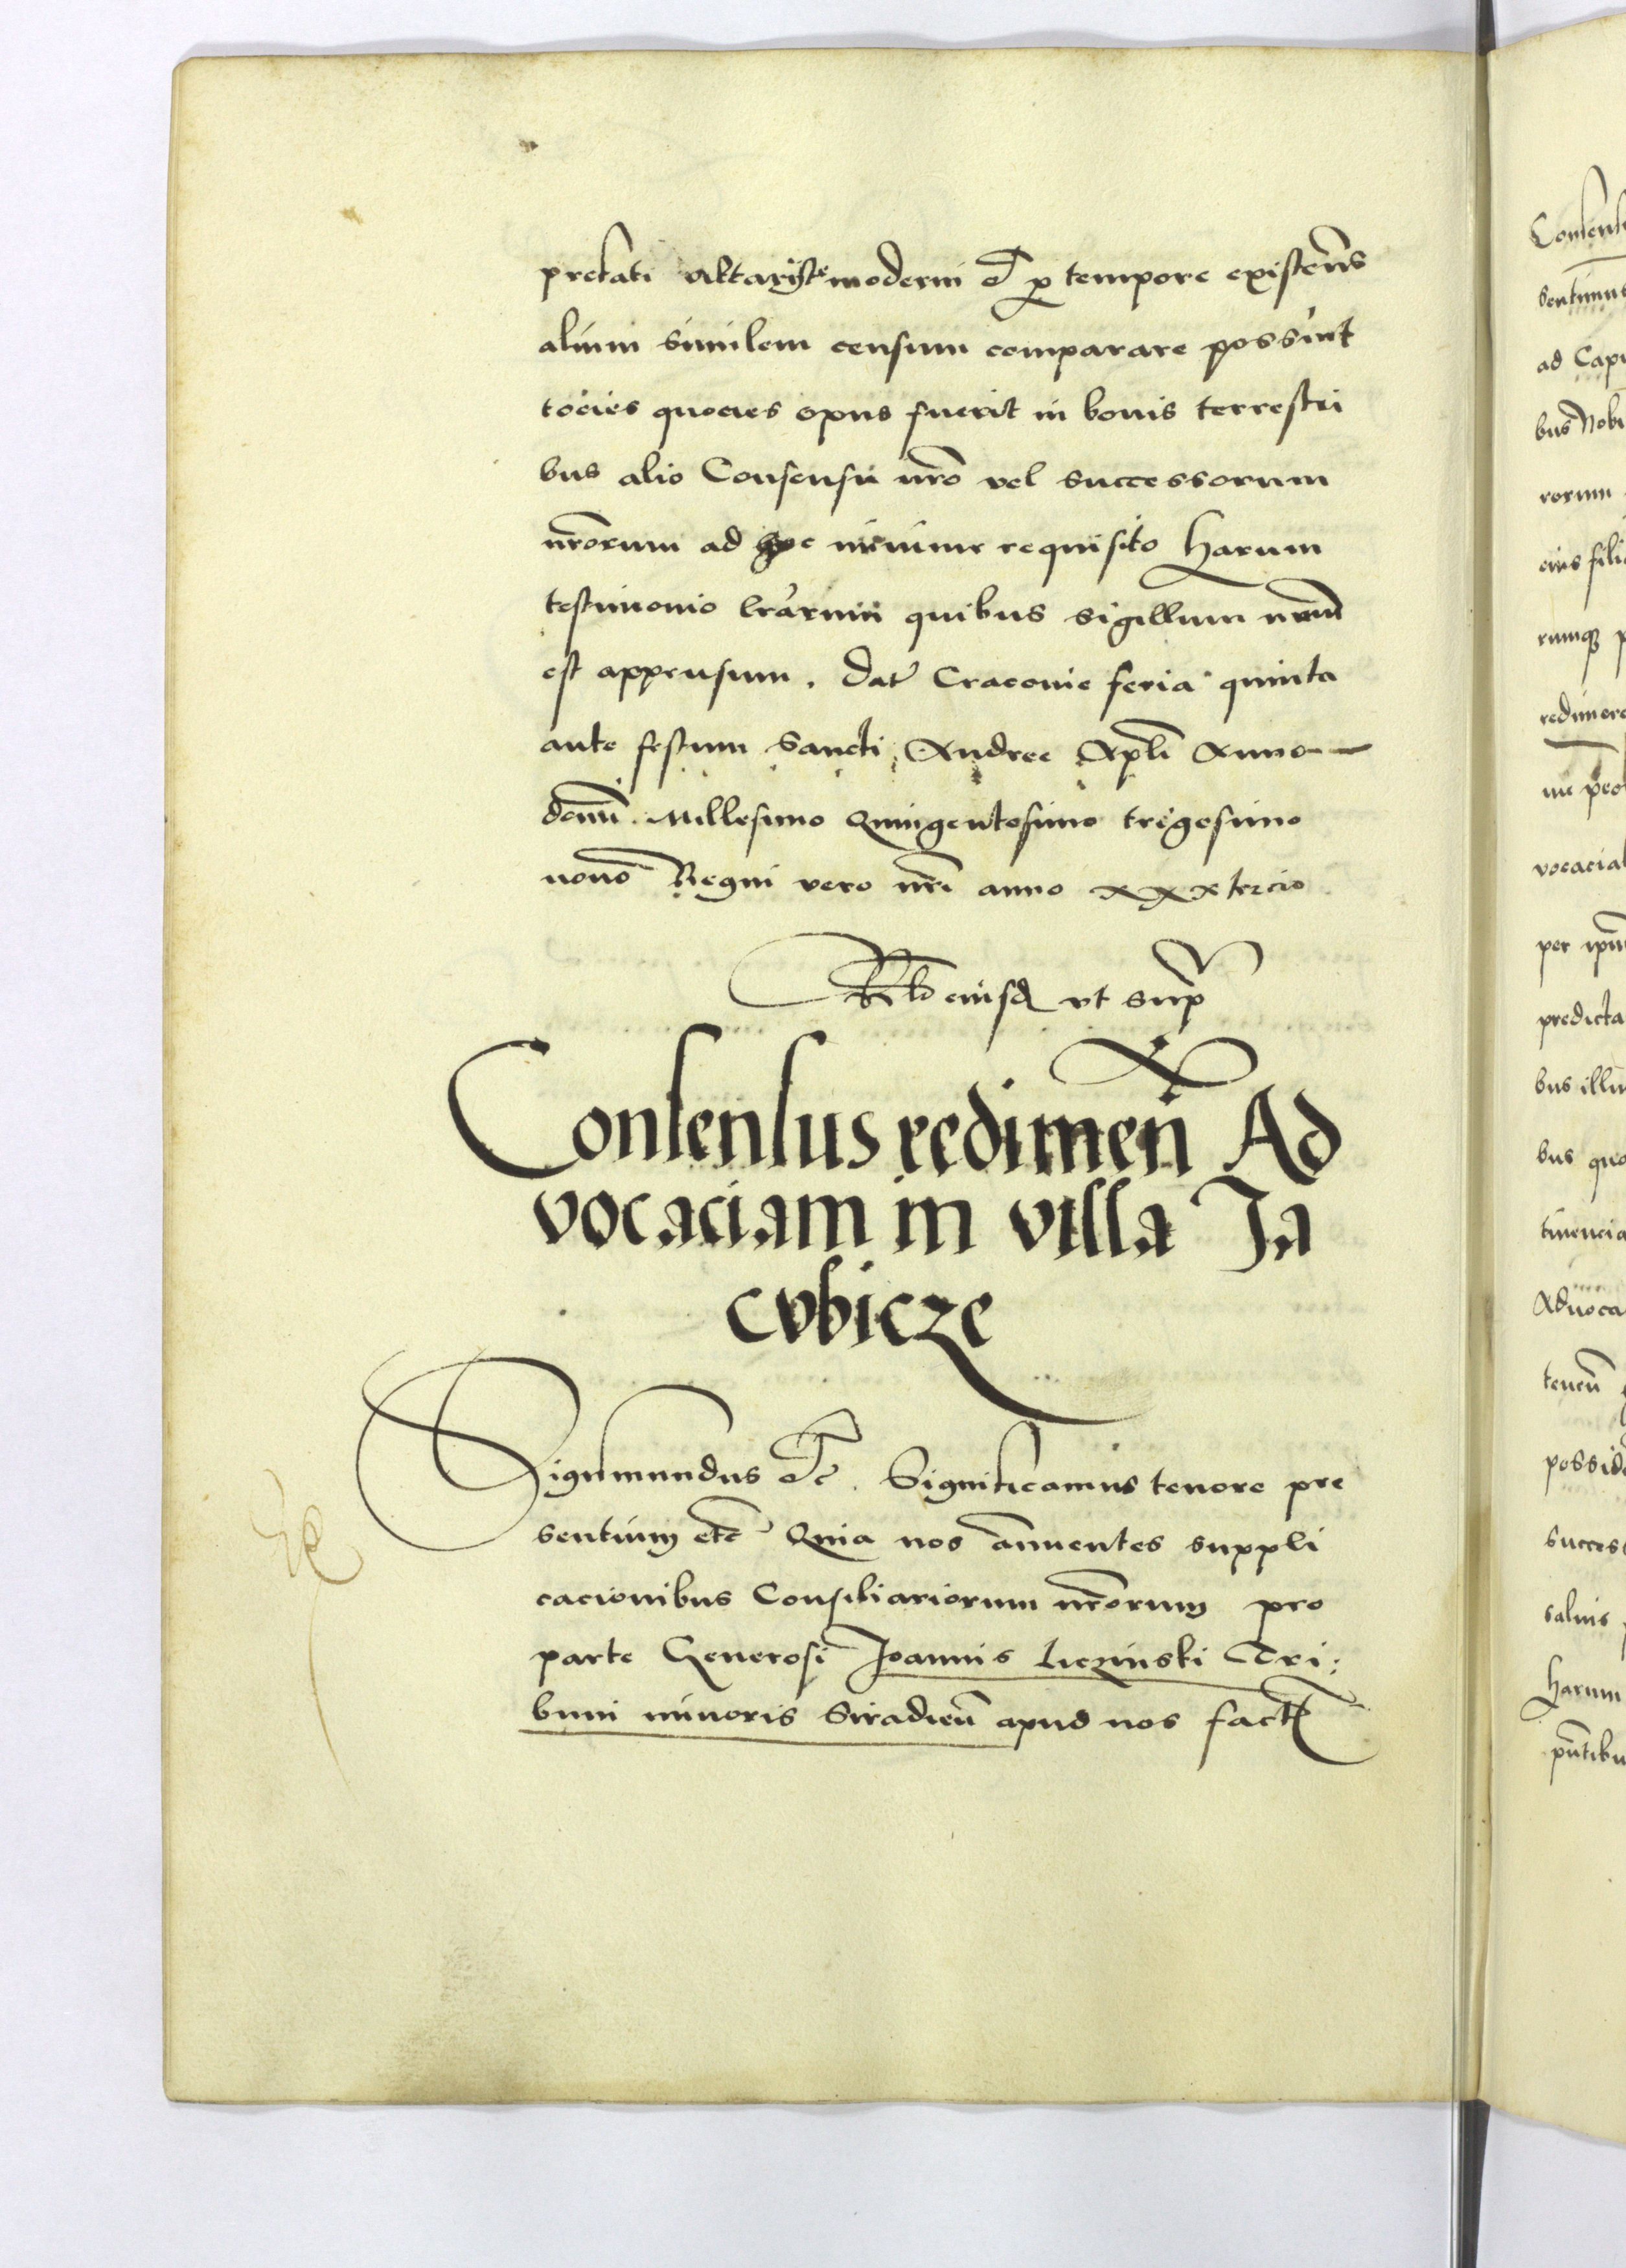 prefati Altariste moderni et p tempore existens
alium similem censum comparare possint
tocies quocies opus fuerit in bonis terrestri
bus alio Consensu nro vel successorum
nrorum ad hoc minime requisito Harum
testimonio lrarum quibus sigillum nrum
est appensum. Dat Cracovie feria quinta
ante festum Sancti Andree Apli Anno
domi Millesimo Quingentesimo trigesimo
nono Regni vero nri anno xxx tercio.
Rlo eiusd ut sup
Consensus redimen Ad
vocaciam in villa Ja
cvbicze
Sigismundus etc. Significamus tenore pre
sentium etc Quia nos annuentes suppli
cacionibus Consiliariorum nrorum pro
parte Generosi Joannis Liczinski Tri:
buni minoris Siradien apud nos fact
Consen
sentimus
ad Capi
bus Nobi
rorum
eius fili
rumq p
redimere
vocacia
per ipm
predicta
bus illu
bus quo
tinencia
Advoca
tenen
possid
success
salvis
Harum
pntibu